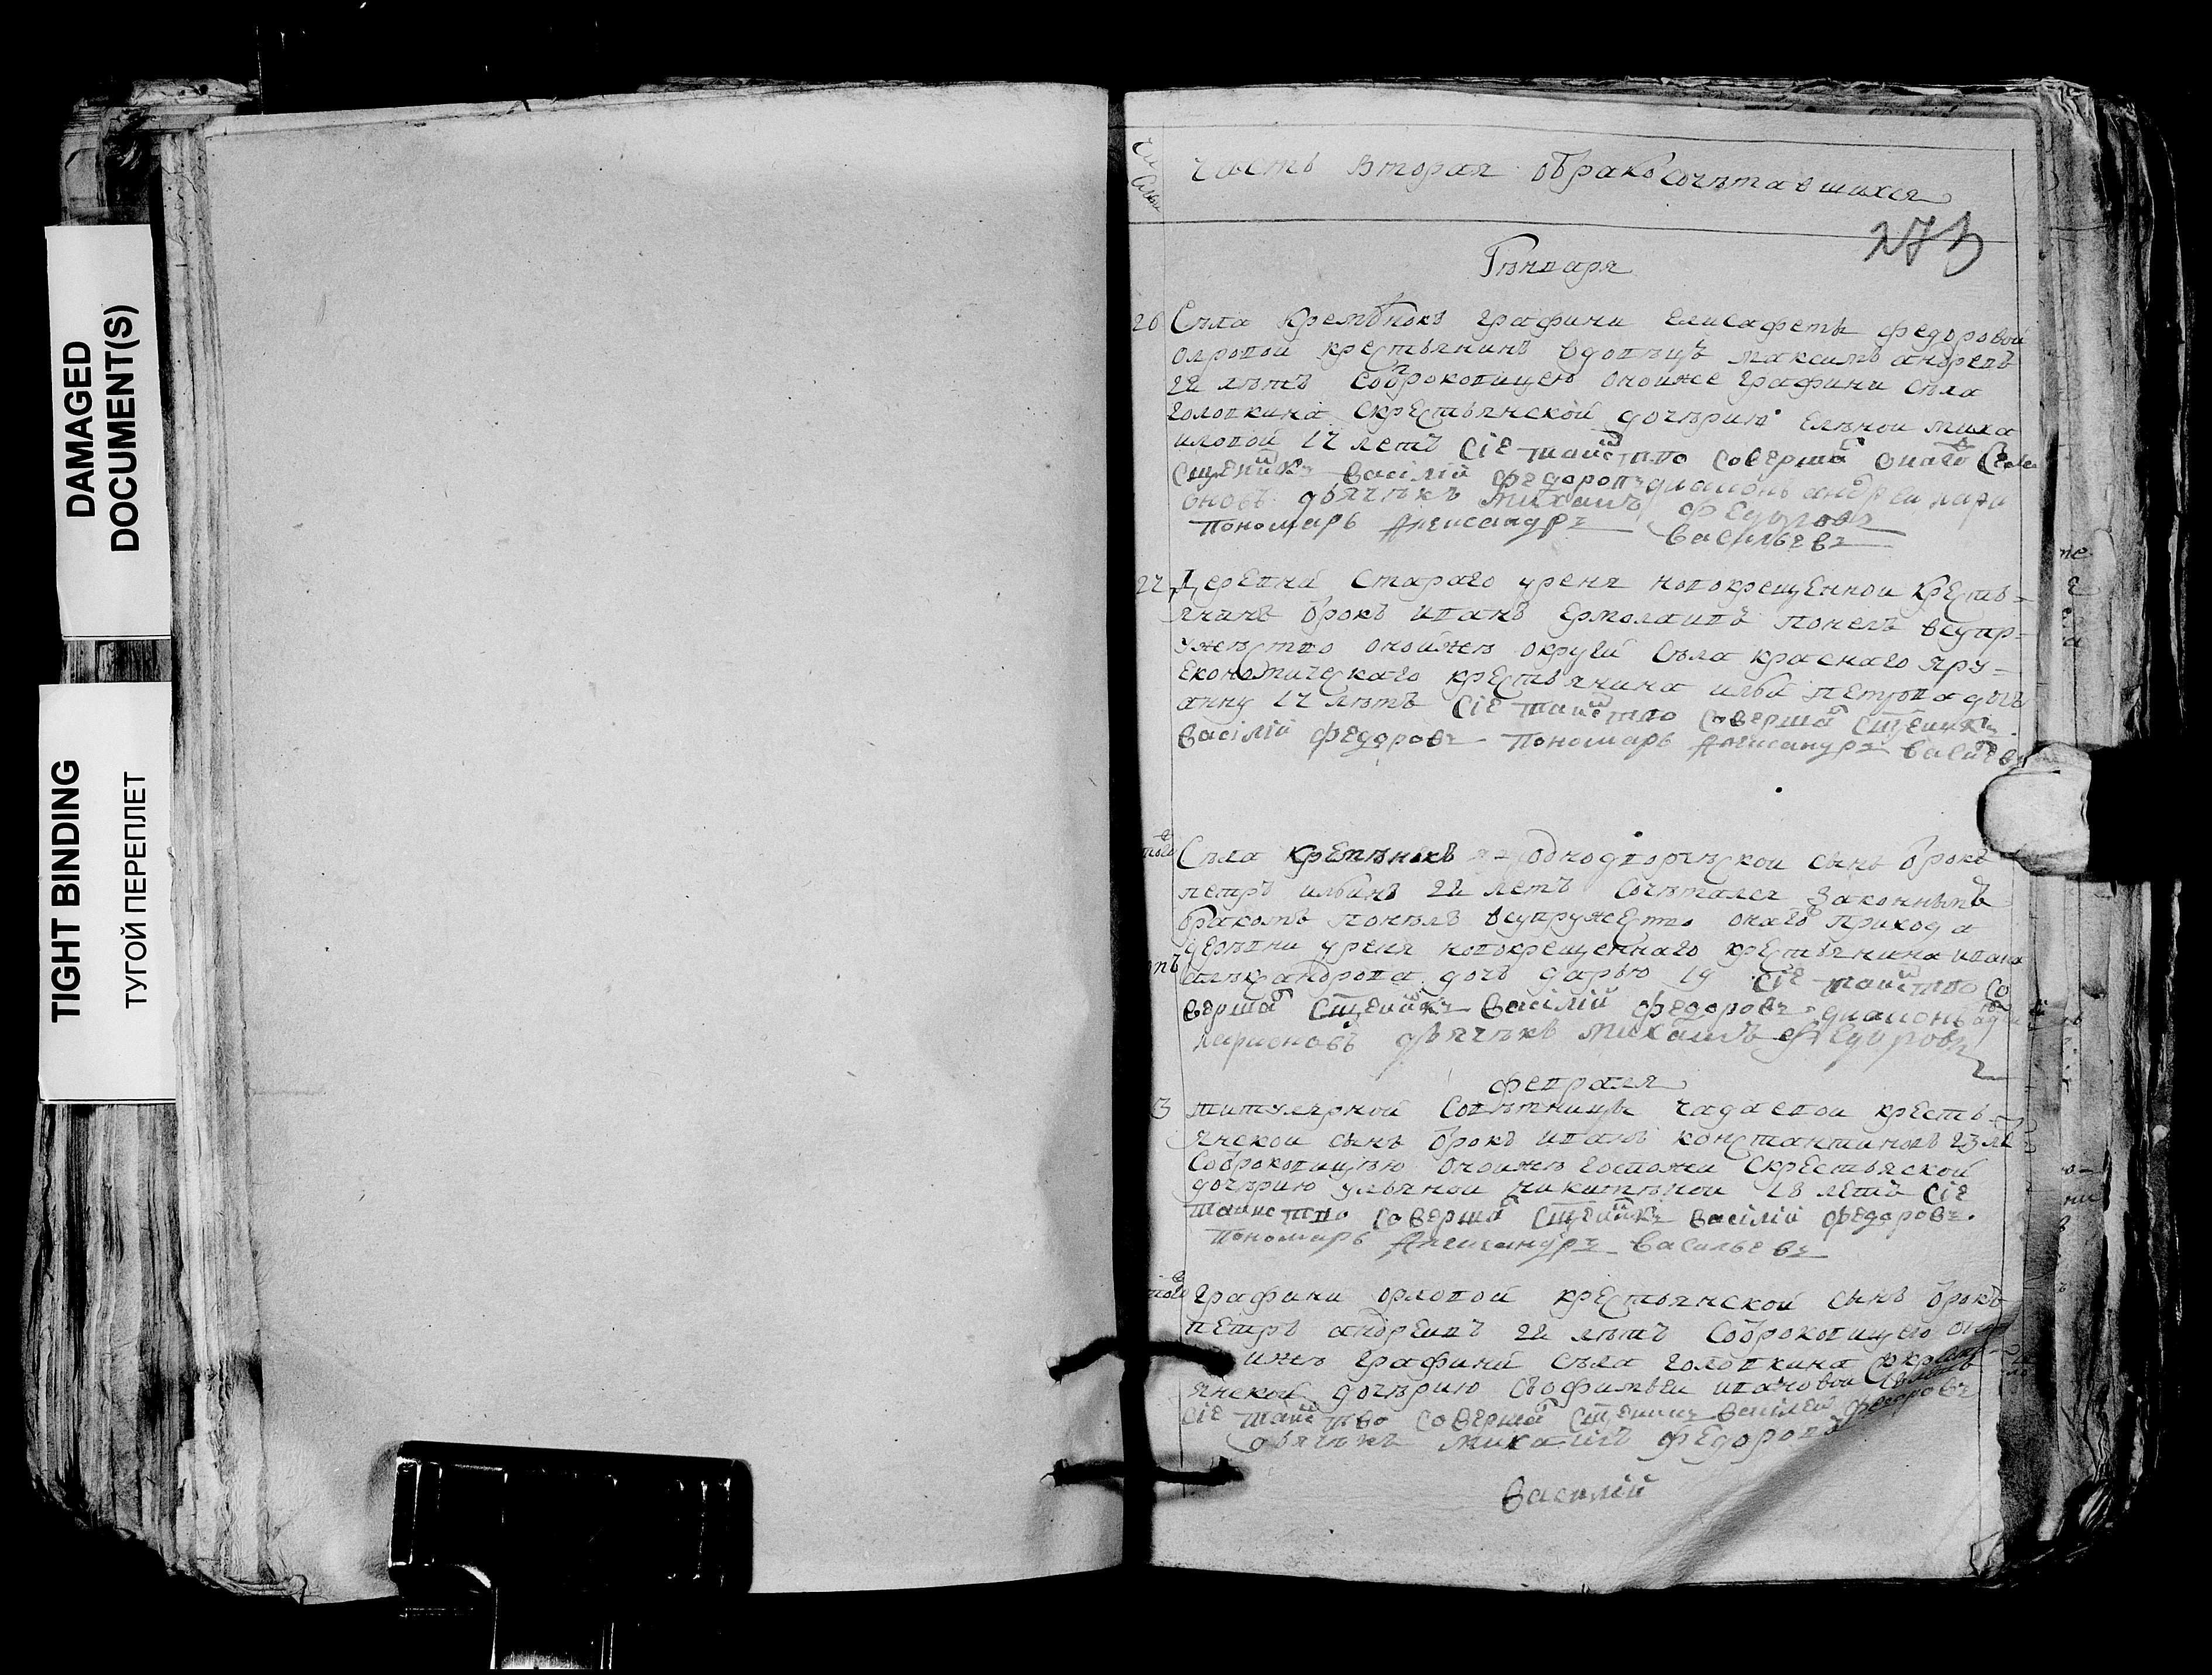 DAMAGED
DOCUMENT(S)
TIGHT BINDING
ТУГОЙ ПЕРЕПЛЕТ
часть вторая обракосочѣтавшихся
273
Гѣнваря
26 Сѣла Кремѣнокъ графини елисафеты федоровой
орловой крестьянинъ вдовѣцъ максимъ андревъ
22 лѣтъ Сотроковицею оноиже графини сѣла
головкина скрестьянской дочѣрию елѣной миха
иловой 17 летъ сіе таинство соверша онаго села
сщенникъ василій федоровъ диаконъ андреи лари
оновъ дьячѣкъ михаилъ федоровъ
пономарь Александръ васильевъ
27 Деревни Стараго уреня новокрещенной Кресть-
янинъ отрокъ иванъ ермолаивъ понелъ всупр-
ужѣство оноижѣ округи сѣла краснаго яру-
Економическаго крестьянина ильи петрова дочь
анну 17 лѣтъ сіе таинство соверша сщенникъ
василій федоровъ пономарь Александръ васильевъ
того Сѣла кремѣнокъ однодворчѣской сынъ отрокъ
петръ ильинъ 22 летъ сочѣтался Законнымъ
бракомъ понѣлъ всупружество онаго прихода
дерѣвни уреня новокрещеннаго крестьянина ивана
алѣксандрова дочь дарью 19 сіе таинство со
верша сщенникъ василій федоровъ диаконъ
ларионовъ дьячѣкъ михаилъ федоровъ
февраля
3 титулярной совѣтницы чадаевой кресть-
янской сынъ отрокъ иванъ константиновъ 23 лѣ
Сотроковицѣю оноижѣ госпожи скрестьяской
дочѣрию ульяной никитѣной 18 летъ сіе
таинство соверша сщенникъ василій федоровъ.
пономарь Александръ васильевъ
того графини орловой крестьянской сынъ отрокъ
петръ андреивъ 22 лѣтъ сотроковицею
ижѣ графини сѣла головкина
янской дочѣрию ивановой
сіе таинство соверша сщенникъ василей федоровъ
дьячѣкъ михаилъ федоровъ
василій